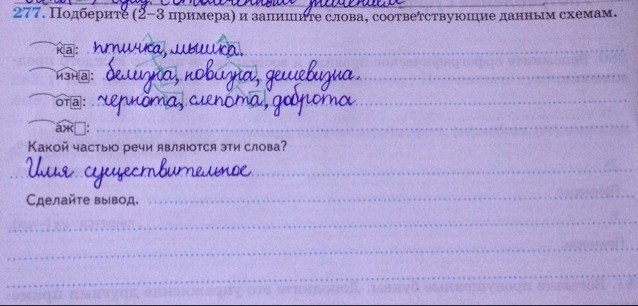 277. Подберите (2–3 примера) и запишите слова, соответствующие данным схемам.
ка: птичка, мышка.
изна: белизна, новизна, дешевизна.
ота: чернота, слепота, доброта
аж:
Какой частью речи являются эти слова?
Имя существительное
Сделайте вывод.